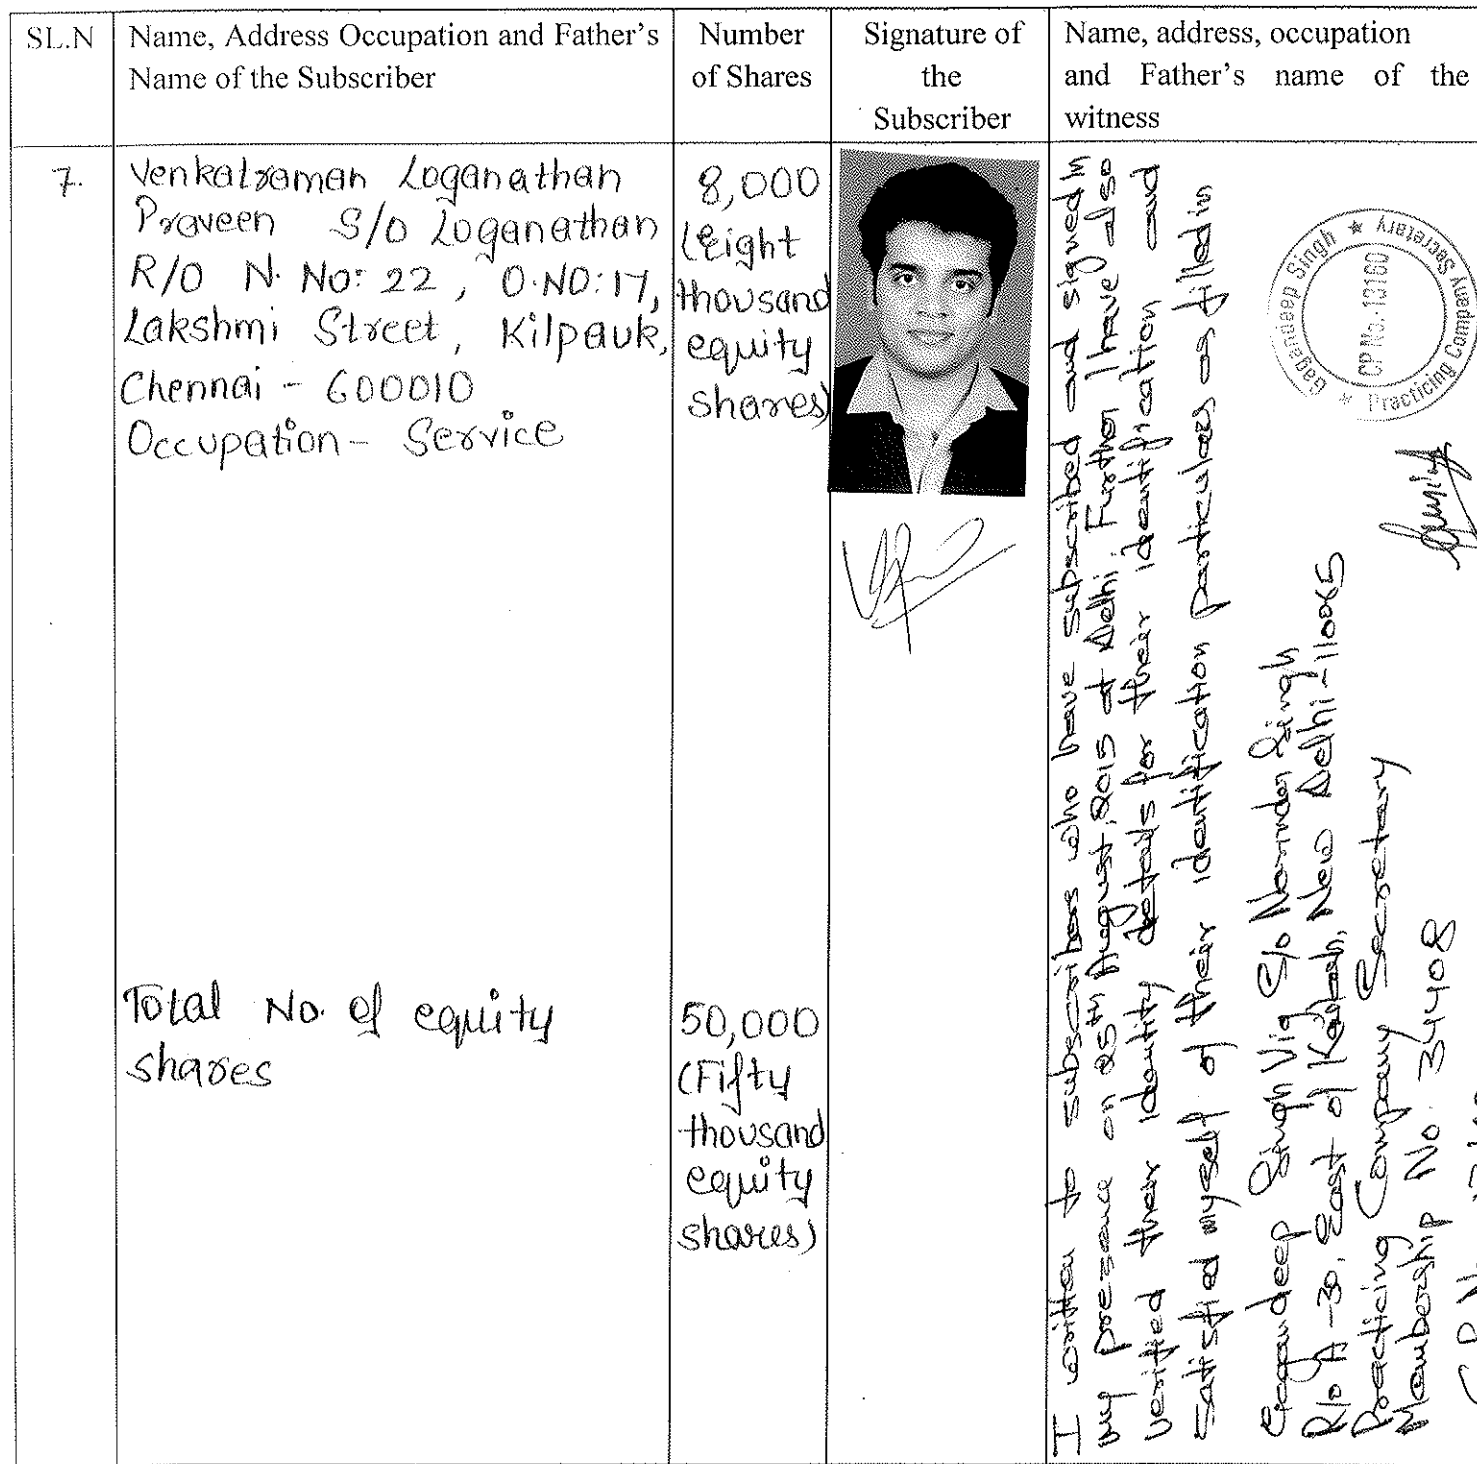 SL.N
Name, Address Occupation and Father's
Name of the Subscriber
Number
of Shares
Signature of
the
Subscriber
Name, address, occupation
and Father's name of the
witness
7.
Venkatraman Loganathan
Praveen S/o Loganathan
R/O N. No: 22, O.NO: 17,
Lakshmi Street, Kilpauk,
Chennai - 600010
Occupation - Service
8,000
(Eight
thousand
equity
shares)
Total No. of equity
shares
50,000
(Fifty
thousand
equity
shares)
I written to subscribers who have subscribed and signed in
my presence on 25th August, 2015 at Delhi, Further I have also
verified their identity details for their identification and
satisfied myself of their identification particulars as filled in
Gagandeep Singh Vig S/o Narinder Singh
R/o A-30, East of Kailash, New Delhi-110065
Practicing Company Secretary
Membership No. 34408
C.P. No.
Gagandeep Singh * Practicing Company Secretary *
CP No. 13160